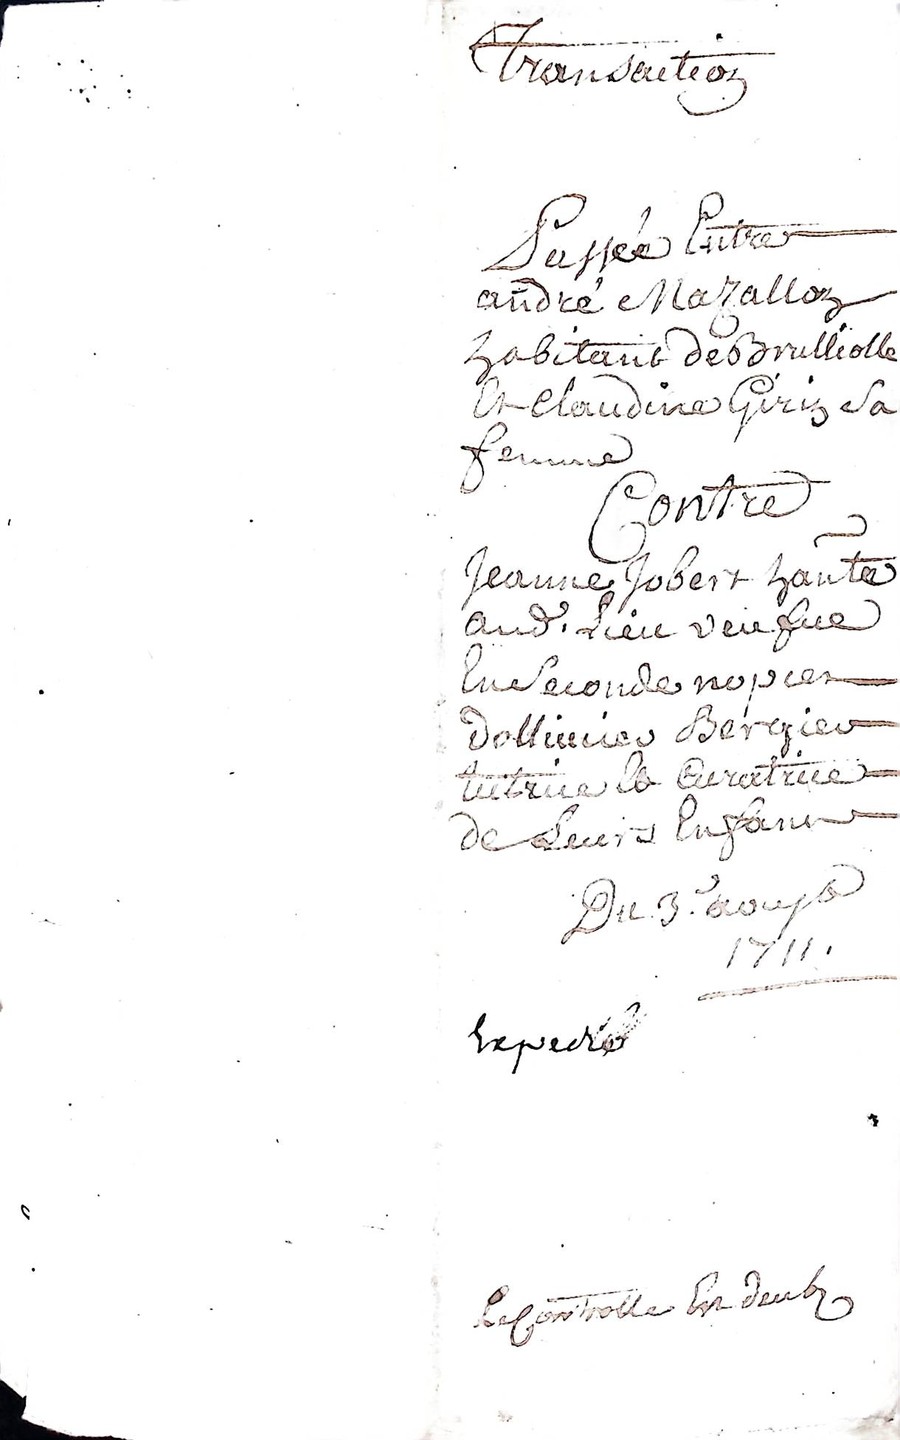 Transaction
Passée Entre
andré Mazallon
habitant de Brulliolle
Et Claudine Girin sa
femme
Contre
Jeanne Jobert habitante
aud. Lieu veufue
En Seconde nopces
dollivier Bergier
tutrice Et Curatrice
de Leurs Enfans
Du 3e. aoust
1711.
Expedié
Le Controlle Est deub